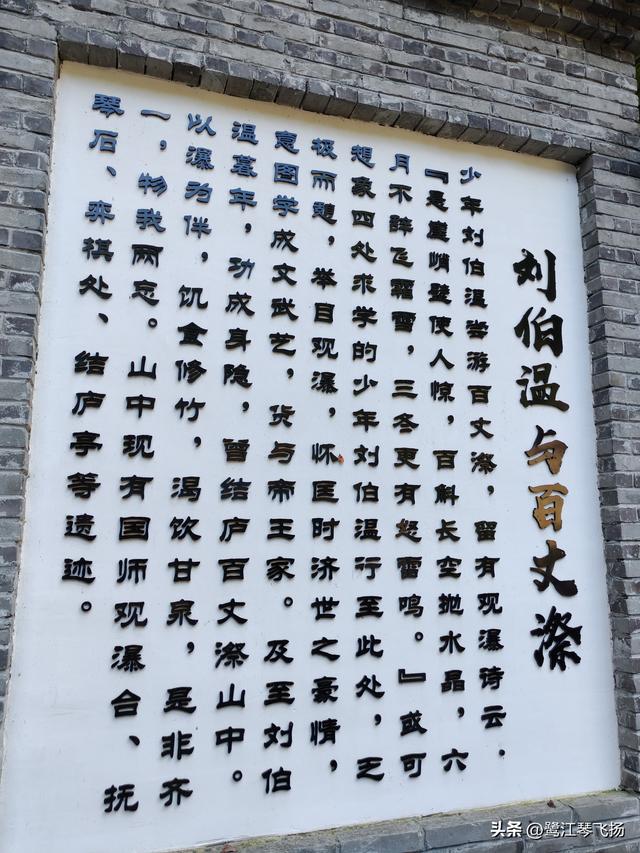 刘伯温与百丈漈
少年刘伯温尝游百丈漈，留有观瀑诗云，
『悬崖峭壁使人惊，百斛长空抛水晶，六
月不辞飞霜雪，三冬更有怒雷鸣。』或可
想象四处求学的少年刘伯温行至此处，乏
极而憩，举目观瀑，怀匡时济世之豪情，
意图学成文武艺，货与帝王家。及至刘伯
温暮年，功成身隐，曾结庐百丈漈山中。
以瀑为伴，饥食修竹，渴饮甘泉，是非齐
一，物我两忘。山中现有国师观瀑台、抚
琴石、弈棋处、结庐亭等遗迹。
头条 @鹭江琴飞扬